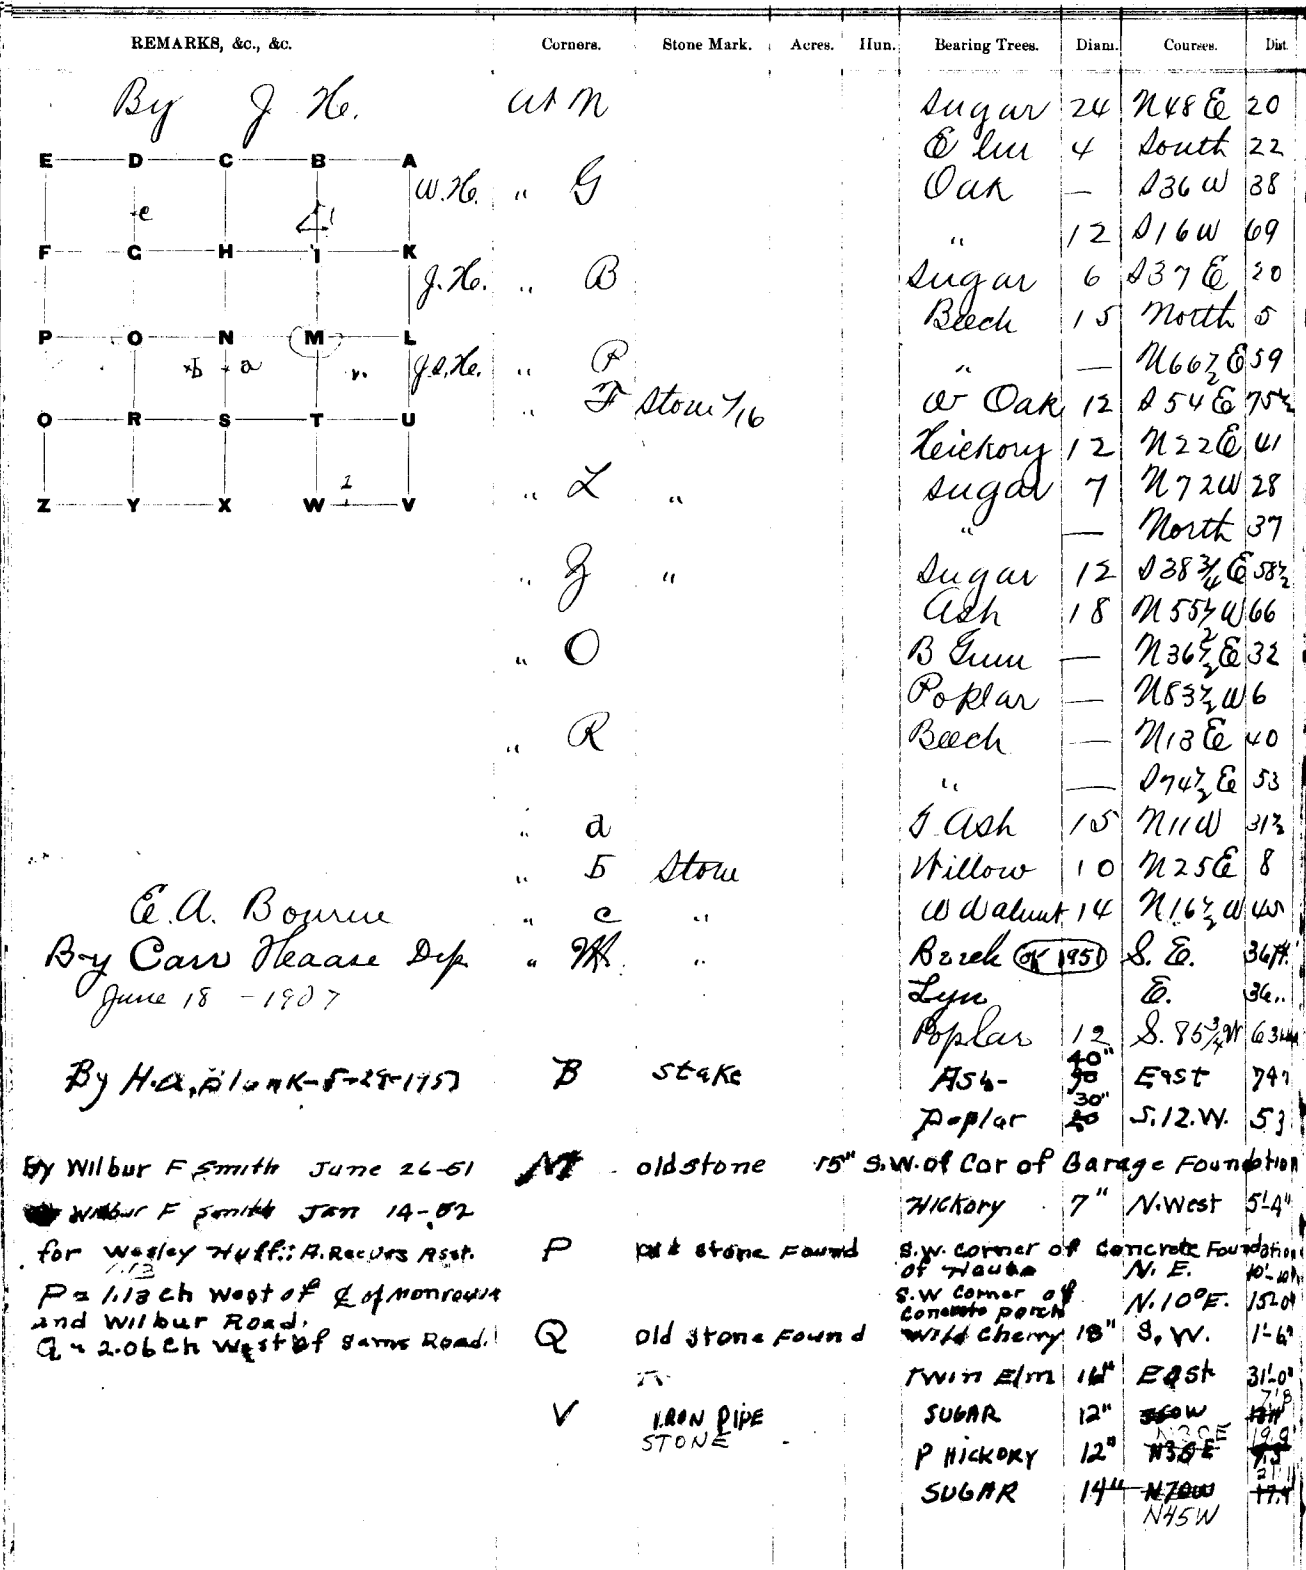 REMARKS, &c., &c. Corners. Stone Mark. Acres. Hun. Bearing Trees. Diam. Courses. Dist.
By J H. at N Sugar 24 N48E 20
E D C B A Elm 4 South 22
W.H. " G Oak — S36W 38
e
" 12 S16W 69
F G H I K
J.H. " B Sugar 6 S37E 20
Beech 15 North 5
P O N M L
b a J.S.H. " P " — N66½E 59
" F Stone 7/16 W Oak 12 S54E 75½
O R S T U
Hickory 12 N22E 41
1 " L " Sugar 7 N72W 28
Z Y X W V
" — North 37
" Z " Sugar 12 S38¾E 58½
Ash 18 N55½W 66
" O B Gum — N36½E 32
Poplar — N83½W 6
" R Beech — N13E 40
" — S74½E 53
" a G Ash 15 N11W 31½
" b Stone Willow 10 N25E 8
E.A. Bourne " c " W Walnut 14 N16½W 45
By Carr Haase Dep " M. " Beech of 1951 S.E. 36ft.
June 18 - 1907 Lyn E. 36"
Poplar 12 S. 85¾W 63
By H.A. Plonk-5-29-1951 B Stake Ash- 40" East 747
Poplar 30" S.12.W. 53
By Wilbur F Smith June 26-51 M old stone 15" S.W. of Cor of Garage Foundation
Wilbur F Smith Jan 14-52 Hickory 7" N.West 5'-4"
for Wesley Huff: A. Reeves Asst. P old stone Found S.W. corner of Concrete Foundation
1.13 of House N.E. 10'-10"
P = 1.13 ch West of ℄ of Monrovia S.W corner of
and Wilbur Road. concrete porch N.10°E. 15'-0"
Q = 2.06 Ch West of Same Road. Q old stone Found Wild Cherry 18" S.W. 1'-6"
Twin Elm 16" East 31'-0"
V IRON PIPE SUGAR 12" S60W 7'8
STONE N30E 19.9
P HICKORY 12" N30E 9.5
SUGAR 14" N70W 17.4
N45W